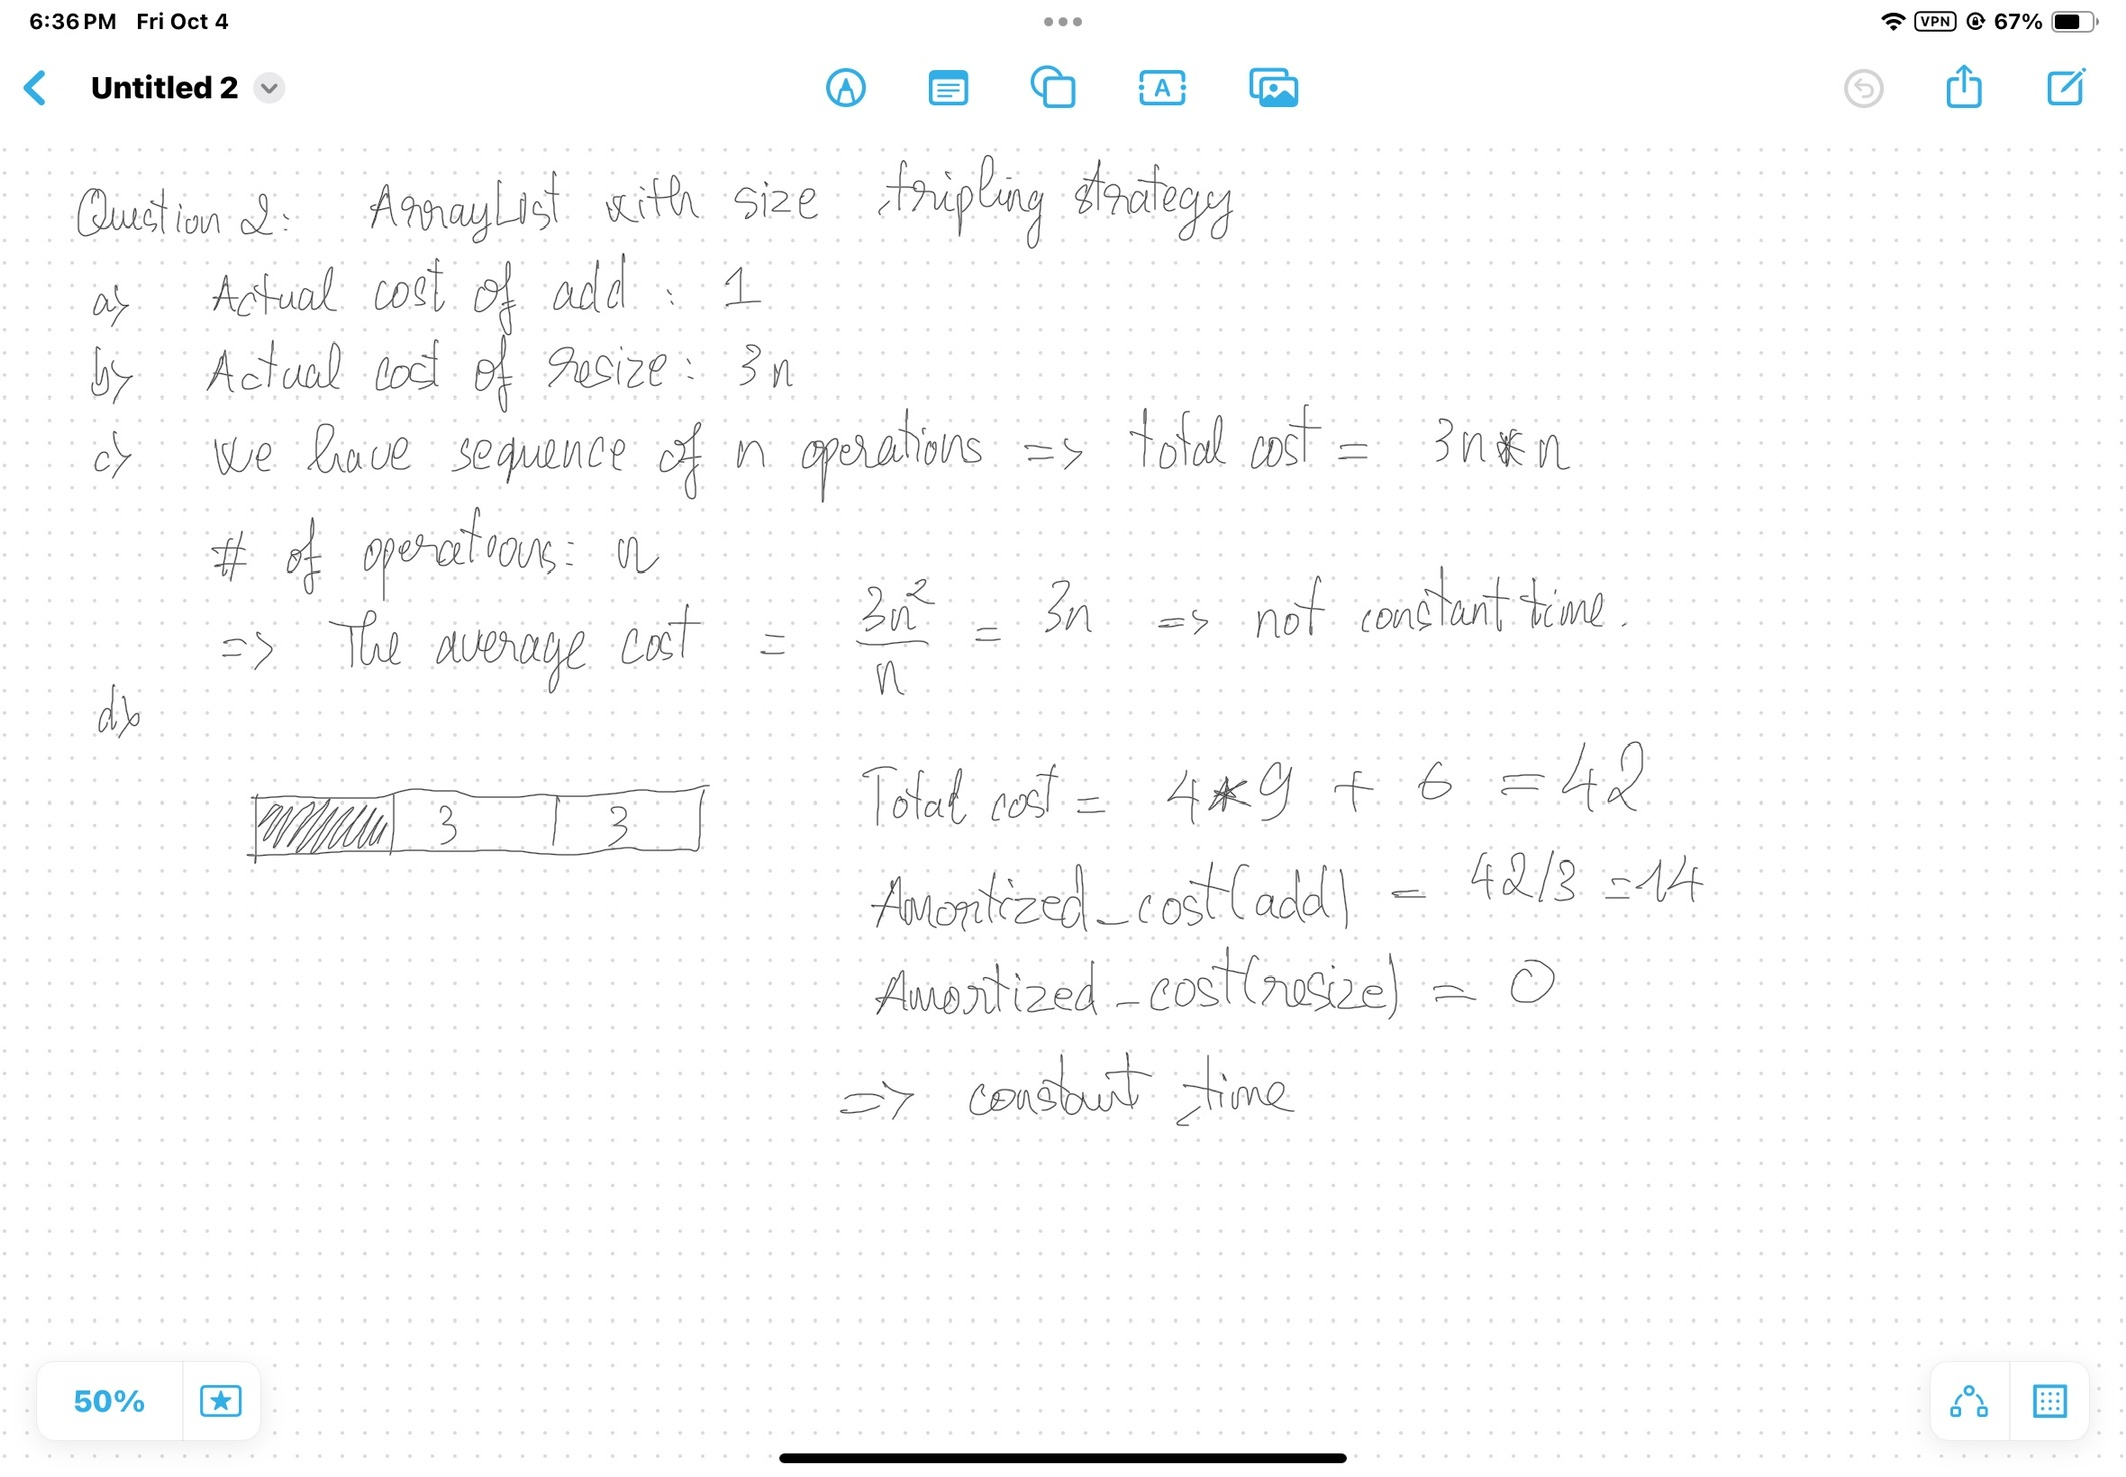 6:36 PM Fri Oct 4
VPN 67%
Untitled 2
A
Question 2: ArrayList with size tripling strategy
a) Actual cost of add : 1
b) Actual cost of resize : 3n
c) We have sequence of n operations => total cost = 3n*n
# of operations: n
=> The average cost = 3n²/n = 3n => not constant time.
d)
3 3
Total cost = 4*9 + 6 = 42
Amortized_cost(add) = 42/3 = 14
Amortized_cost(resize) = 0
=> constant time
50%